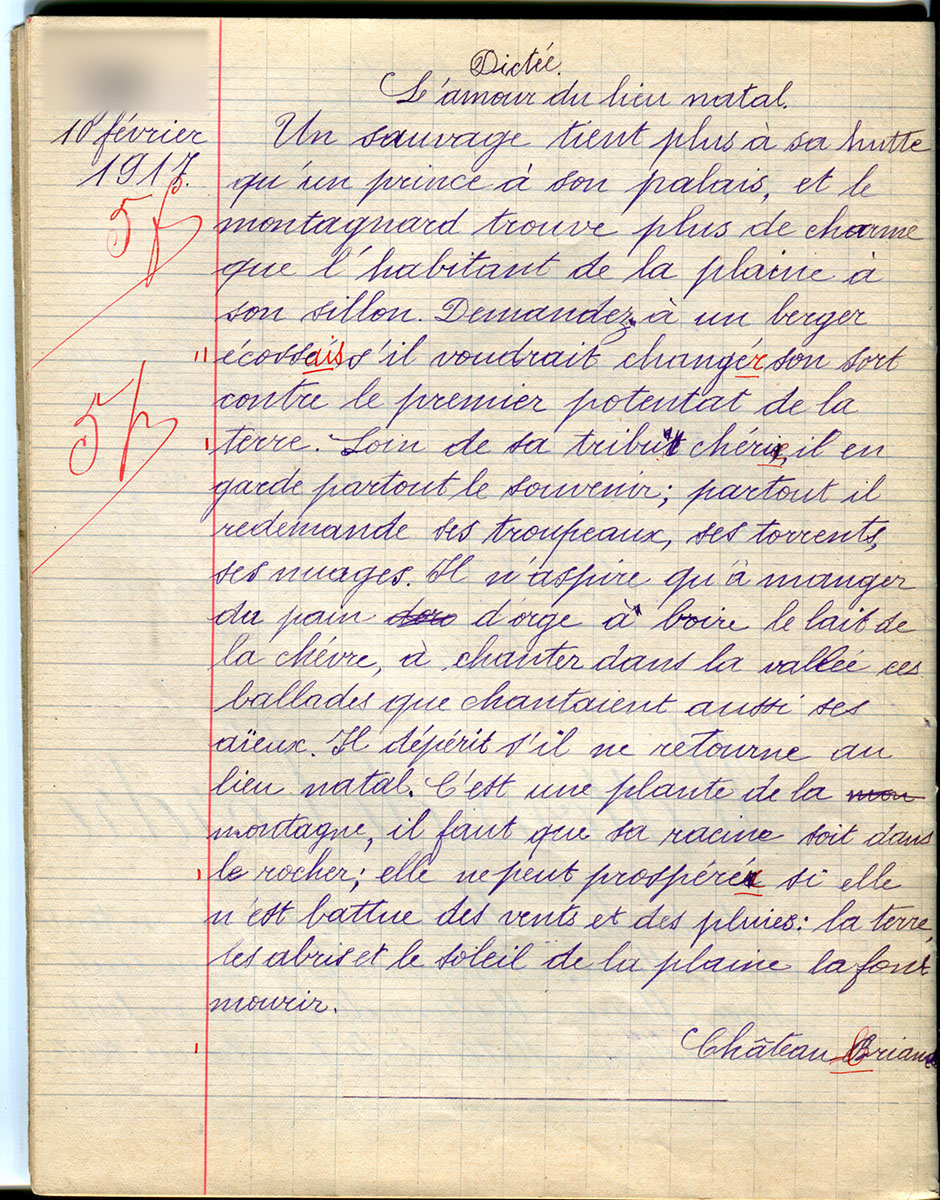 Dictée.
L'amour du lieu natal.
10 février
1917.
Un sauvage tient plus à sa hutte
qu'un prince à son palais, et le
montagnard trouve plus de charme
que l'habitant de la plaine à
son sillon. Demandez à un berger
écossais s'il voudrait changer son sort
contre le premier potentat de la
terre. Loin de sa tribu chérie, il en
garde partout le souvenir ; partout il
redemande ses troupeaux, ses torrents,
ses nuages. Il n'aspire qu'à manger
du pain d'orge à boire le lait de
la chévre, à chanter dans la vallée ces
ballades que chantaient aussi ses
aïeux. Il dépérit s'il ne retourne au
lieu natal. C'est une plante de la
montagne, il faut que sa racine soit dans
le rocher ; elle ne peut prospérer si elle
n'est battue des vents et des pluies : la terre,
les abris et le soleil de la plaine la font
mourir.
Château Brian